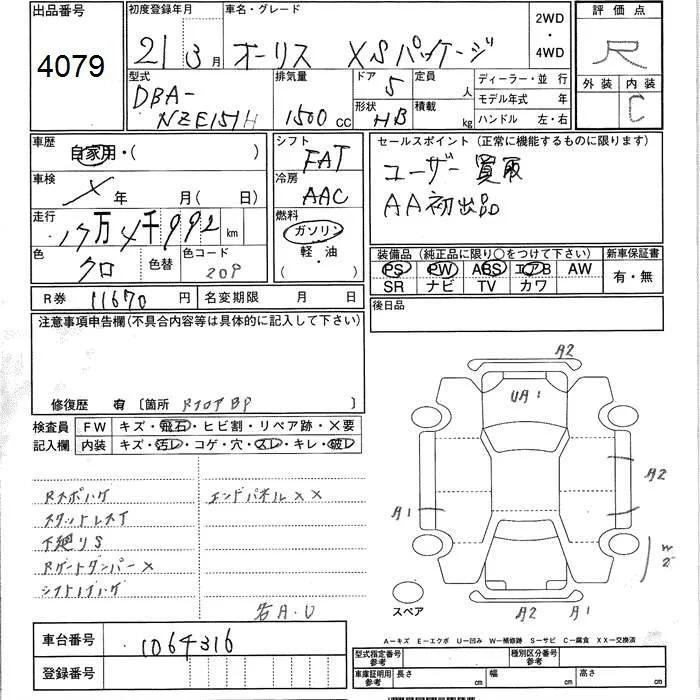 出品番号
4079
初度登録年月
21 3 月
車名・グレード
オーリス XSパッケージ
2WD
・
4WD
評価点
R
外装 内装
C
型式
DBA-
NZE151H
排気量
1500 CC
ドア 5
形状 HB
定員 人
積載 kg
ディーラー・並 行
モデル年式 年
ハンドル 左・右
車歴
自家用・( )
車検
年 月(日)
走行
17万4千992 km
色
クロ
色替
色コード
209
シフト
FAT
冷房
AAC
燃料
ガソリン
軽・油
( )
セールスポイント(正常に機能するものに限ります)
ユーザー買取
AA初出品
装備品(純正品に限り〇をつけて下さい)
PS PW ABS エアB AW
SR ナビ TV カワ
新車保証書
有・無
R券 11670 円
名変期限 月 日
後日品
注意事項申告欄(不具合内容等は具体的に記入して下さい)
修復歴 有 〔箇所 〕
検査員
記入欄
FW キズ・飛石・ヒビ割・リペア跡・×要
内装 キズ・汚レ・コゲ・穴・スレ・キレ・破レ
Rスポハゲ
スタットレスT
下廻りS
Rゲートダンパー×
シフトノブハゲ
エンドパネル××
若A.U
A2
UA1
A2
A1
W2
A2
A1
スペア
A-キズ E-エクボ U-凹み W-補修跡 S-サビ C-腐食 XX-交換済
車台番号
1064316
登録番号
型式指定番号
参考
種別区分番号
参考
車庫証明用
参考
長さ cm
幅 cm
高さ cm